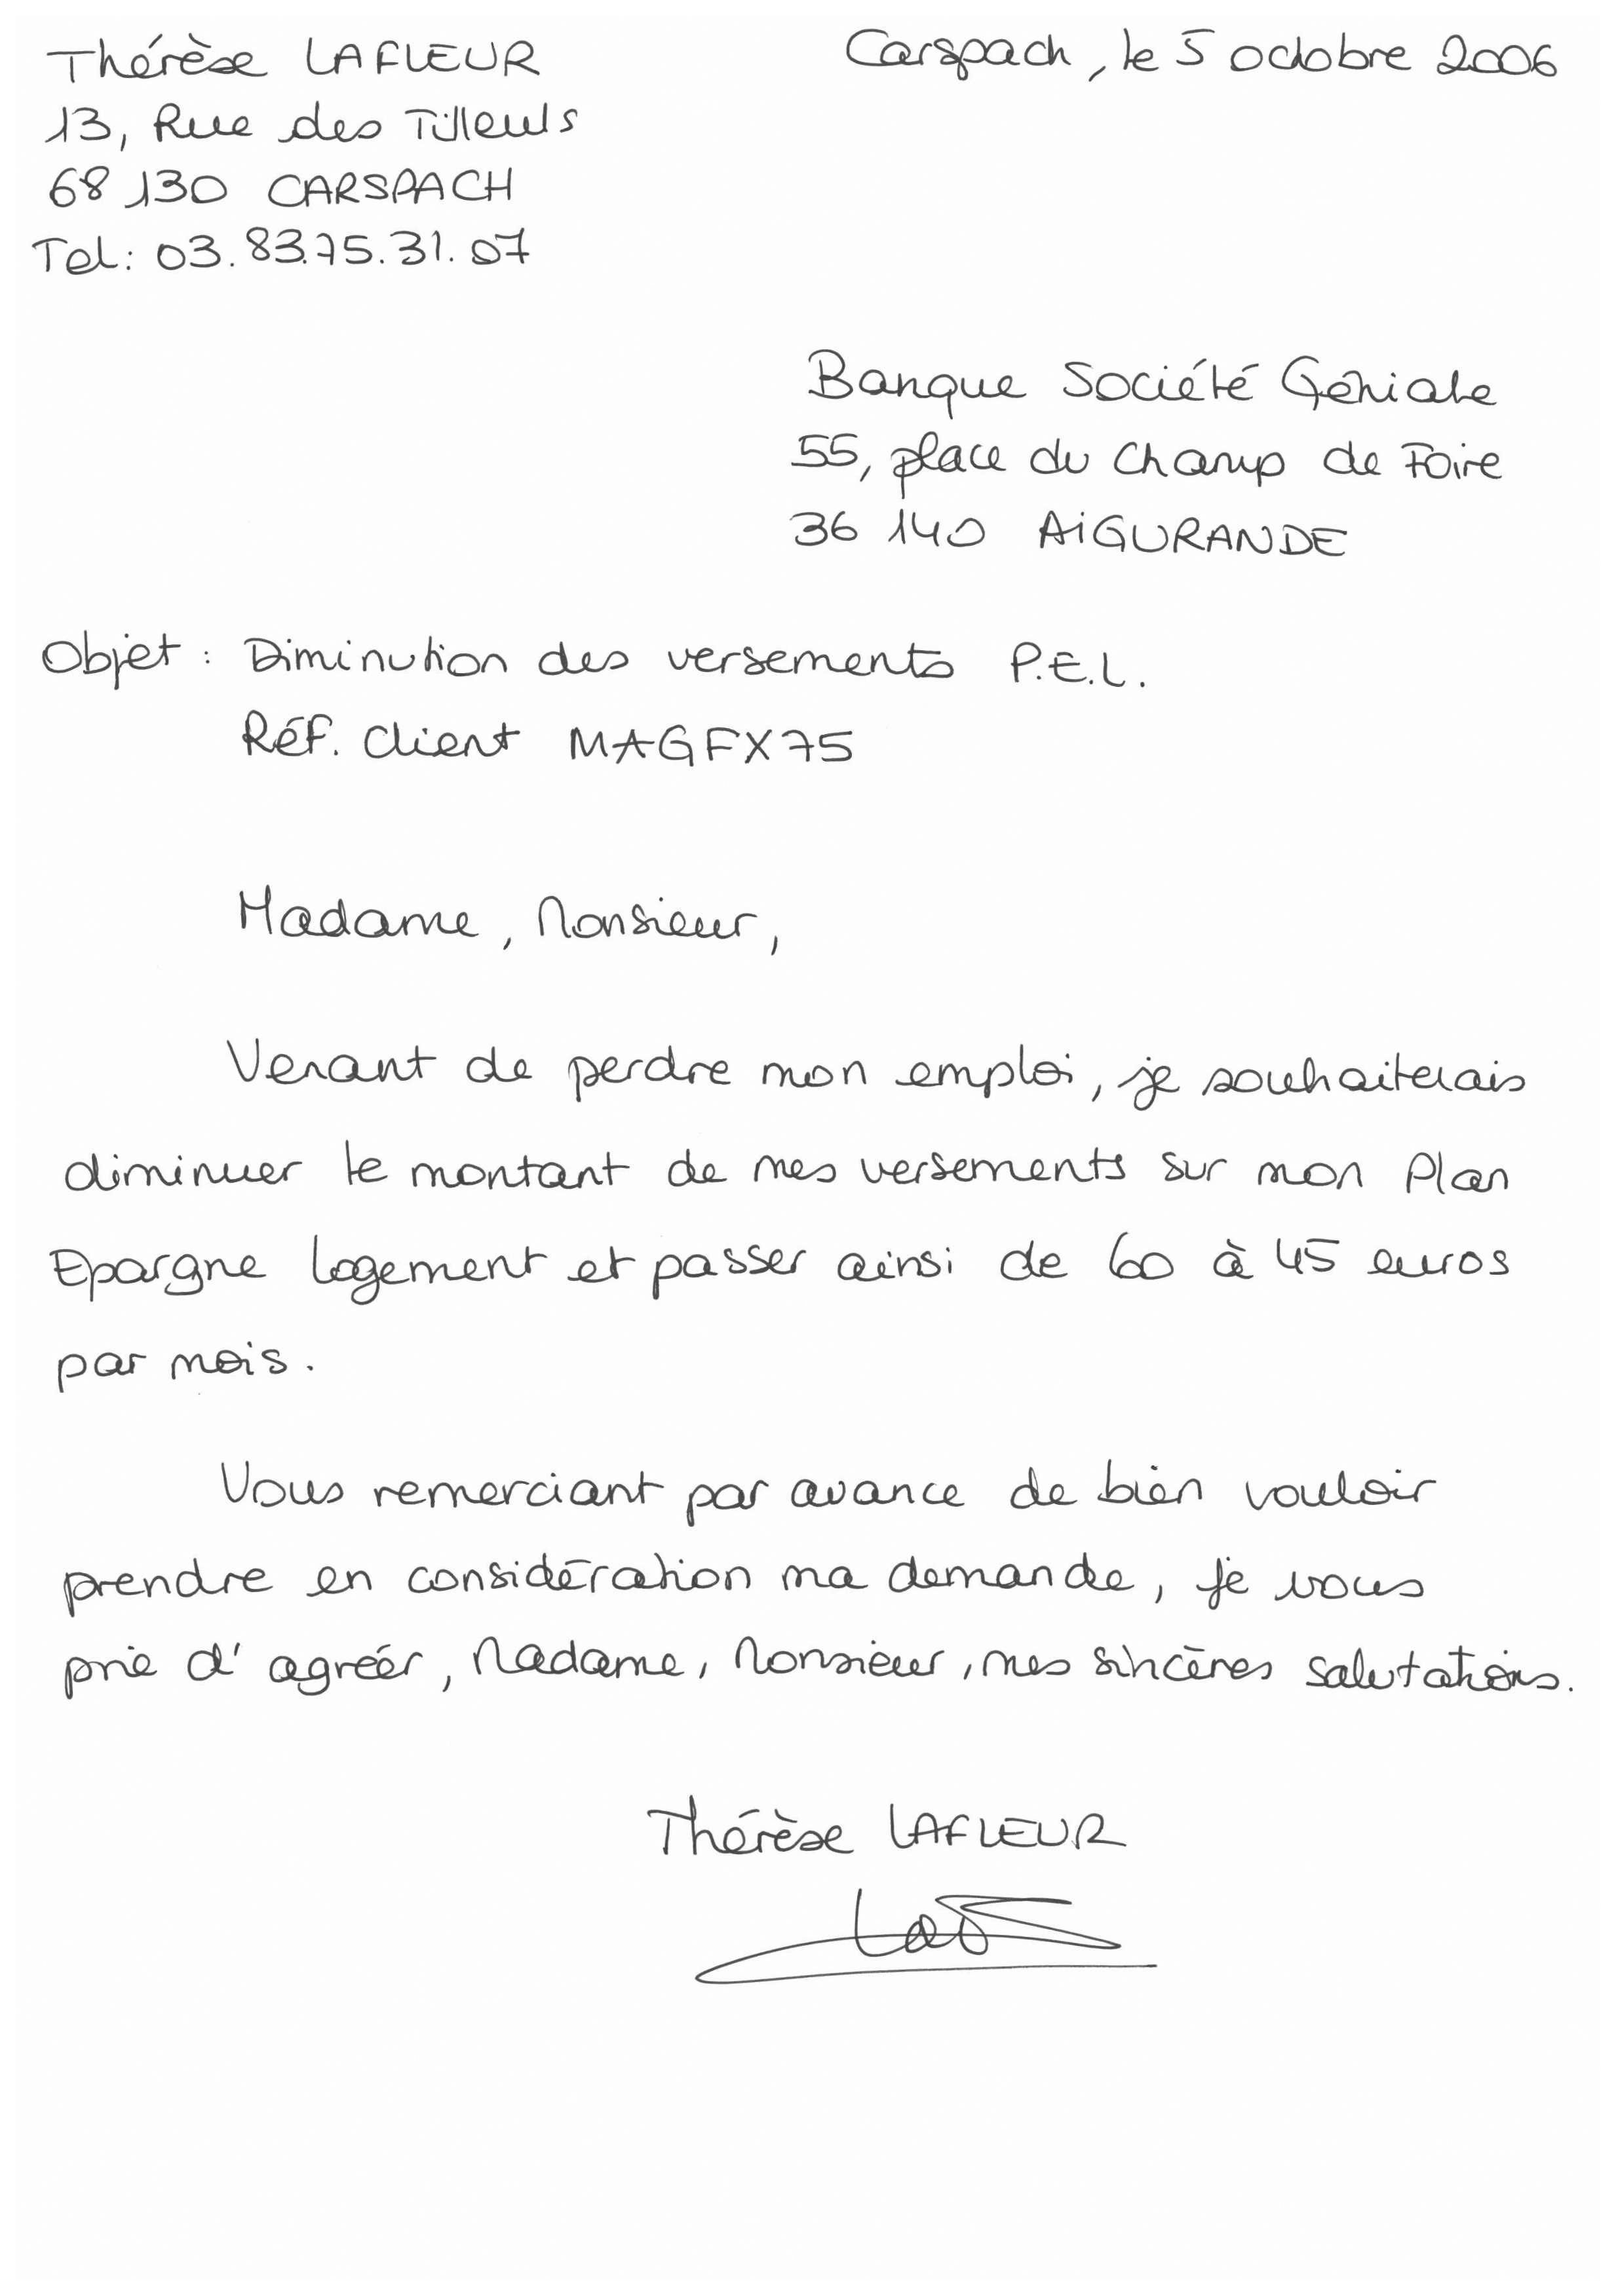 Thérèse LAFLEUR
13, Rue des Tilleuls
68 130 CARSPACH
Tel: 03.83.75.31.07
Carspach, le 5 octobre 2006
Banque Société Géniale
55, place du Champ de Foire
36 140 AIGURANDE
Objet : Diminution des versements P.E.L.
Réf. Client MAGFX75
Madame, Monsieur,
Venant de perdre mon emploi, je souhaiterais
diminuer le montant de mes versements sur mon Plan
Epargne Logement et passer ainsi de 60 à 45 euros
par mois.
Vous remerciant par avance de bien vouloir
prendre en considération ma demande, je vous
prie d'agréer, Madame, Monsieur, mes sincères salutations.
Thérèse LAFLEUR